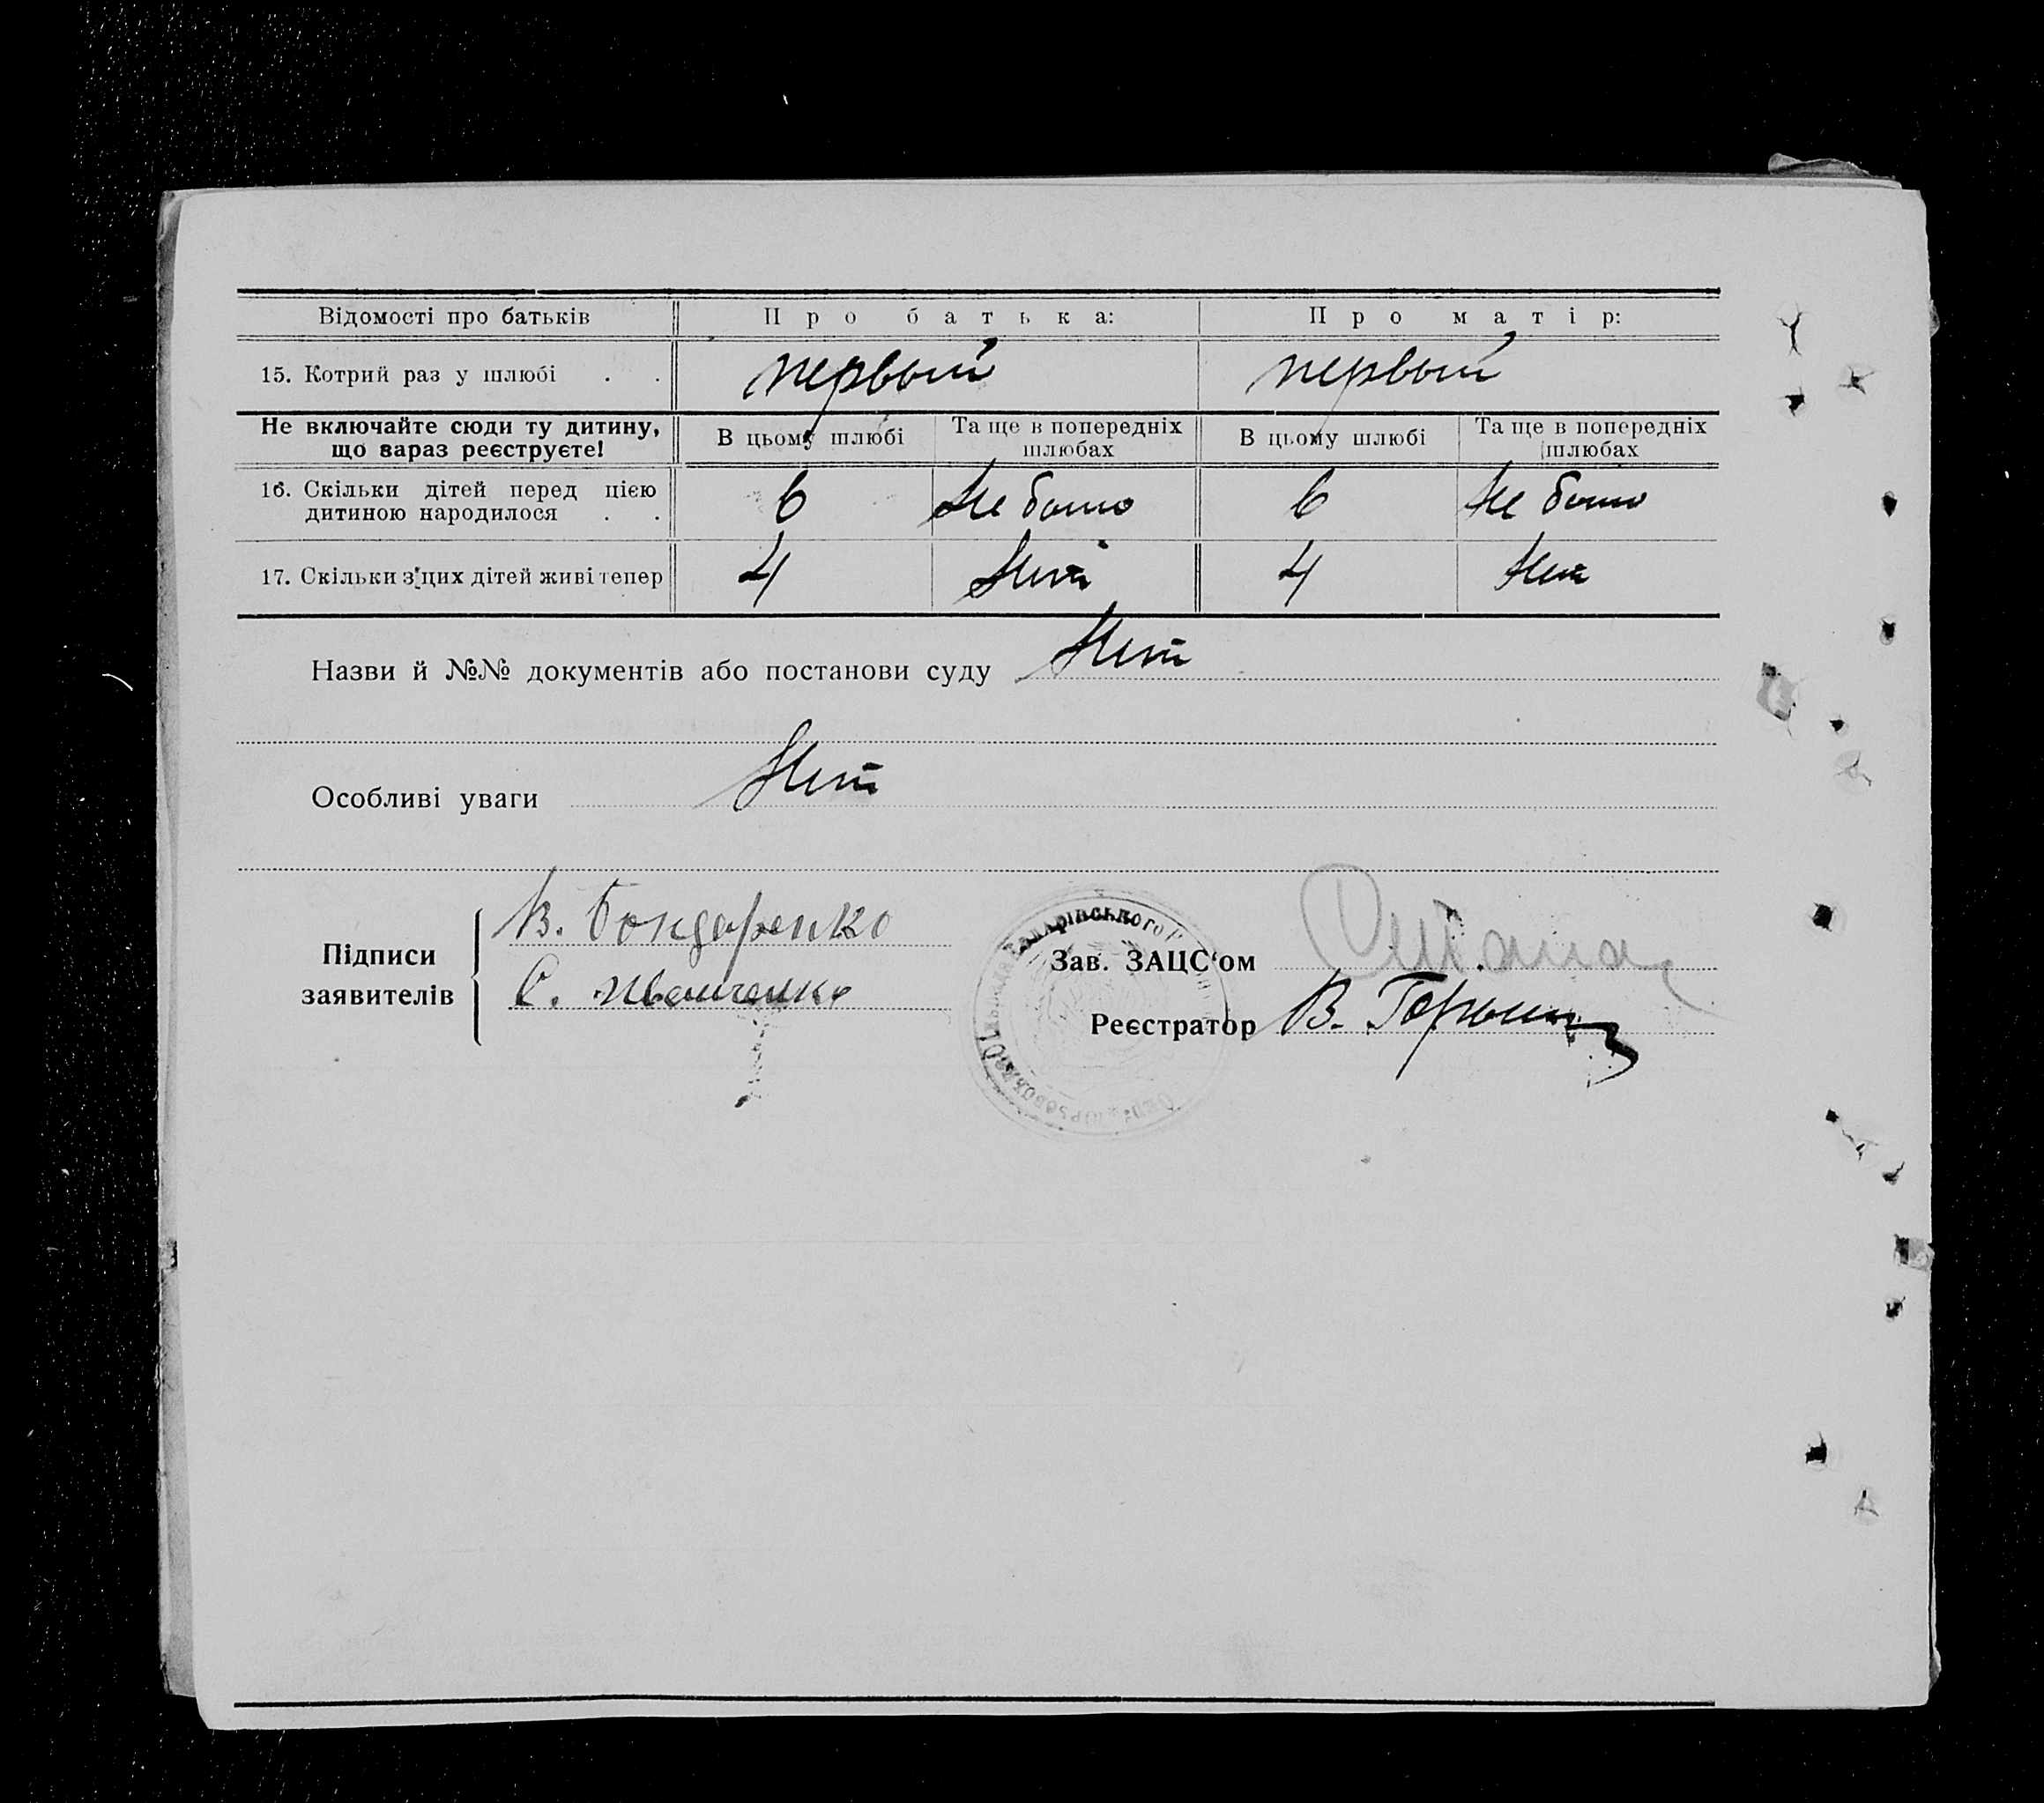 Відомості про батьків Про батька: Про матір:
15. Котрий раз у шлюбі . . первый первый
Не включайте сюди ту дитину, що зараз реєструєте! В цьому шлюбі Та ще в попередніх шлюбах В цьому шлюбі Та ще в попередніх шлюбах
16. Скільки дітей перед цією дитиною народилося . . 6 Не было 6 Не было
17. Скільки з цих дітей живі тепер 4 Нет 4 Нет
Назви й №№ документів або постанови суду Нет
Особливі уваги Нет
Підписи заявителів
В. Бондаренко
С. Иванченко
Зав. ЗАЦС'ом
Реєстратор В.